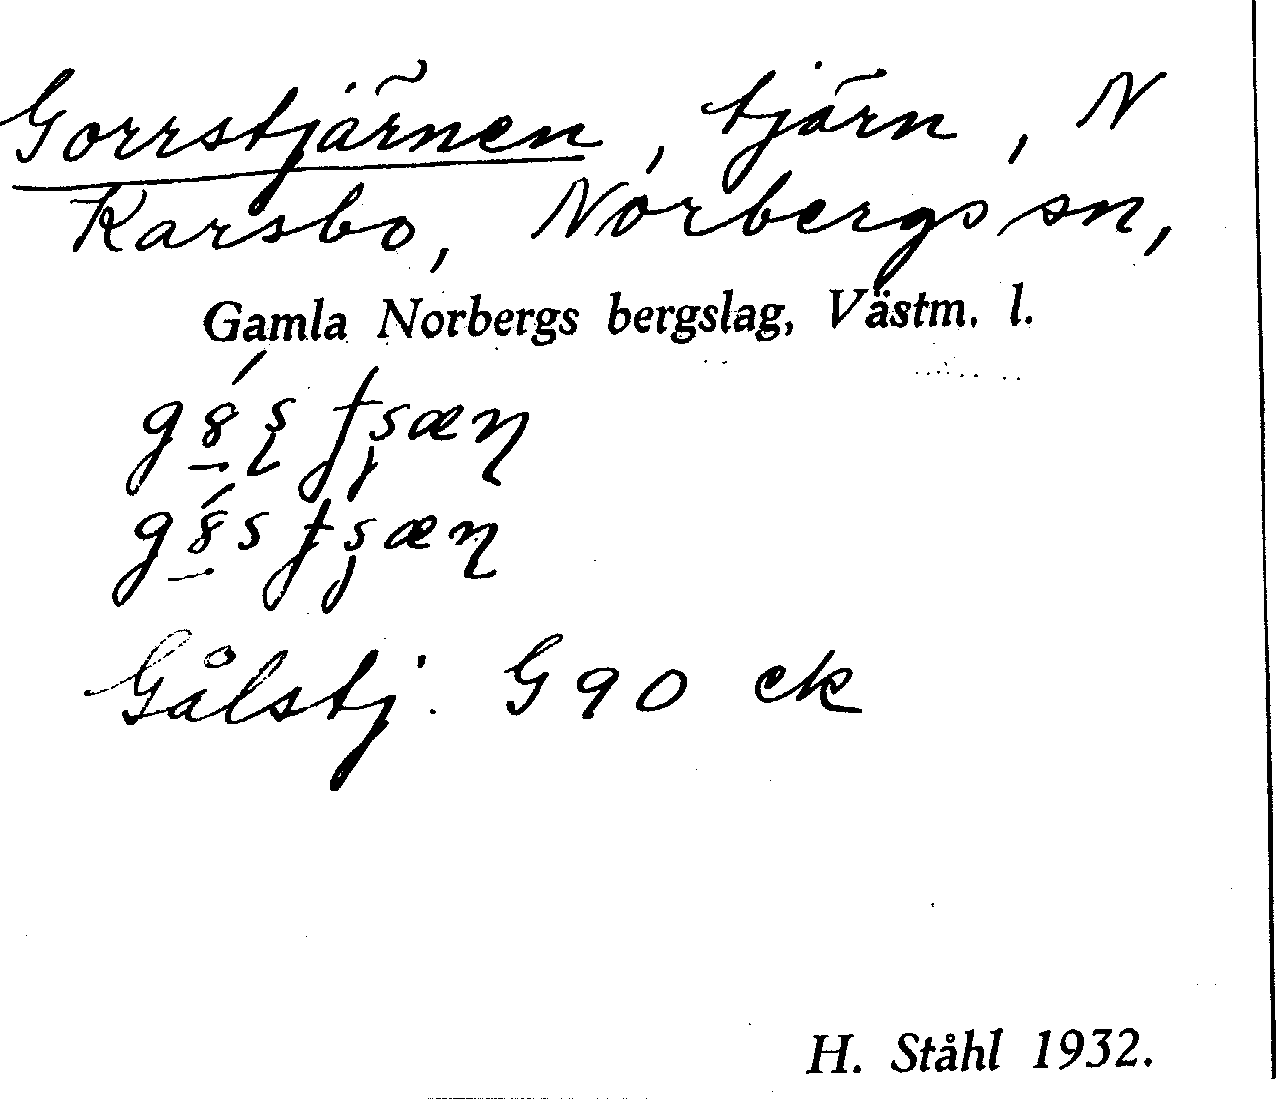 Gorrstjärnen, tjärn, N
Karsbo, Norbergs sn,
Gamla Norbergs bergslag, Västm. l.
Gålstj. G 90 ek
H. Ståhl 1932.